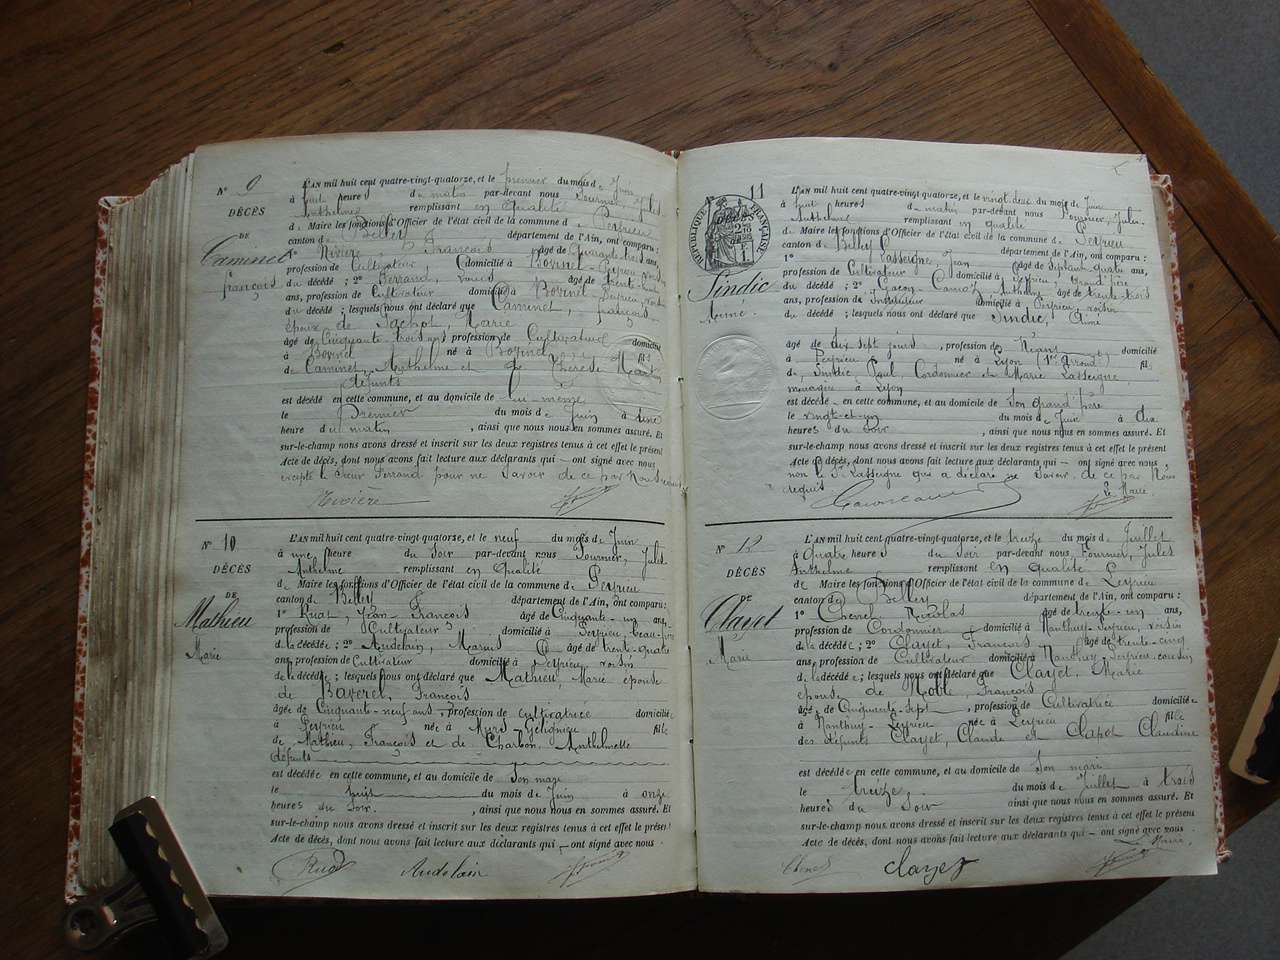 N° 9
DÉCÈS
DE
Caminet
françois
L'AN mil huit cent quatre-vingt-quatorze, et le premier du mois de Juin
à huit heures du matin par-devant nous Fournier, Jules
Anthelme remplissant en qualité
de Maire les fonctions d'Officier de l'état civil de la commune de Peyrieu
canton de Belley département de l'Ain, ont comparu :
1° Rivière, François âgé de Quarante trois ans,
profession de Cultivateur domicilié à Bovinel-Peyrieu, voisin
du décédé ; 2° Ferrand, âgé de trente
ans, profession de Cultivateur domicilié à Bovinel Peyrieu, voisin
du décédé ; lesquels nous ont déclaré que Caminet, français
époux de Marie
âgé de Cinquante-trois ans profession de Cultivateur domicilié
à Bovinel né à Bovinel fils
de Caminet, Anthelme et de Thérèse
défunts
est décédé en cette commune, et au domicile de lui-même
le Premier du mois de Juin à une
heure du matin , ainsi que nous nous en sommes assuré. Et
sur-le-champ nous avons dressé et inscrit sur les deux registres tenus à cet effet le présent
Acte de décès, dont nous avons fait lecture aux déclarants qui ont signé avec nous
excepté le sieur Ferrand pour ne savoir de ce par nous
Rivière
N° 10
DÉCÈS
DE
Mathieu
Marie
L'AN mil huit cent quatre-vingt-quatorze, et le neuf du mois de Juin
à une heure du soir par-devant nous Fournier, Jules
Anthelme remplissant en Qualité
de Maire les fonctions d'Officier de l'état civil de la commune de Peyrieu
canton de Belley département de l'Ain, ont comparu :
1° Ruat, Jean François âgé de Cinquante-un ans,
profession de Cultivateur domicilié à Peyrieu, beau-frère
de la décédée ; 2° Audelain, Marius âgé de trent-quatre
ans, profession de Cultivateur domicilié à Peyrieu, voisin
de la décédée ; lesquels nous ont déclaré que Mathieu, Marie épouse
de Baverel, François
âgée de Cinquante-neuf ans, profession de cultivatrice domiciliée
à Peyrieu née à Murs Gélignieu fille
de Mathieu, François et de Charbon, Anthelmette
défunts
est décédée en cette commune, et au domicile de Son mari
le huit du mois de Juin à onze
heures du Soir. , ainsi que nous nous en sommes assuré. Et
sur-le-champ nous avons dressé et inscrit sur les deux registres tenus à cet effet le présent
Acte de décès, dont nous avons fait lecture aux déclarants qui ont signé avec nous
Ruat Audelain
11
RÉPUBLIQUE FRANÇAISE
DÉCÈS
Sindic
Aimé
L'AN mil huit cent quatre-vingt quatorze, et le vingt-deux du mois de Juin
à huit heures du matin par-devant nous Fournier, Jules
Anthelme remplissant en qualité
de Maire les fonctions d'Officier de l'état civil de la commune de Peyrieu
canton de Belley département de l'Ain, ont comparu :
1° Lasseigne, Jean âgé de Septante quatre ans,
profession de Cultivateur domicilié à Peyrieu, Grand'père
du décédé ; 2° Anthelme âgé de trente-trois
ans, profession de Instituteur domicilié à Peyrieu, voisin
du décédé ; lesquels nous ont déclaré que Sindic, Aimé
âgé de dix sept jours , profession de Néant domicilié
à Peyrieu né à Lyon fils
de Sindic Paul, Cordonnier et Marie Lasseigne
ménagère à Lyon
est décédé en cette commune, et au domicile de Son grand'père
le vingt-et-un du mois de Juin à dix
heures du Soir , ainsi que nous nous en sommes assuré. Et
sur-le-champ nous avons dressé et inscrit sur les deux registres tenus à cet effet le présent
Acte de décès, dont nous avons fait lecture aux déclarants qui ont signé avec nous
non le Sr Lasseigne qui a déclaré ne Savoir de ce par Nous
requis
Le Maire
N° 12
DÉCÈS
DE
Clayet
Marie
L'AN mil huit cent quatre-vingt-quatorze, et le treize du mois de Juillet
à Quatre heures du Soir par-devant nous Fournier, Jules
Anthelme remplissant en qualité
de Maire les fonctions d'Officier de l'état civil de la commune de Peyrieu
canton de Belley département de l'Ain, ont comparu :
1° Chenel, Nicolas âgé de trente-un ans,
profession de Cordonnier domicilié à Nanthuy-Peyrieu, voisin
de la décédée ; 2° Clayet, François âgé de trente-cinq
ans, profession de Cultivateur domicilié à Nanthuy-Peyrieu cousin
de la décédée ; lesquels nous ont déclaré que Clayet, Marie
épouse de Noble, François
âgée de Cinquante-Sept , profession de Cultivatrice domiciliée
à Nanthuy-Peyrieu née à Peyrieu fille
des défunts Clayet, Claude et Clapot Claudine
est décédée en cette commune, et au domicile de Son mari
le treize du mois de Juillet à trois
heures du Soir ainsi que nous nous en sommes assuré. Et
sur-le-champ nous avons dressé et inscrit sur les deux registres tenus à cet effet le présent
Acte de décès, dont nous avons fait lecture aux déclarants qui ont signé avec nous
Chenel Clayet Maire